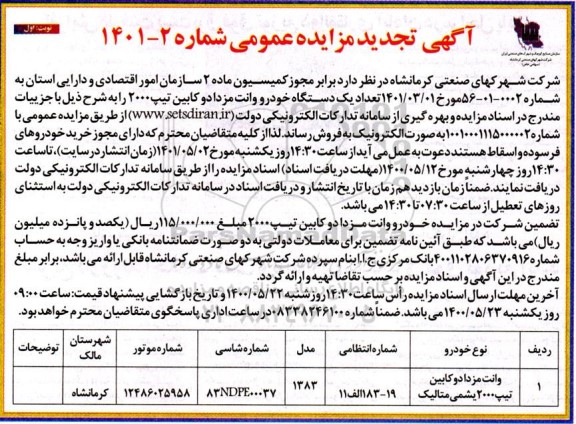 نوبت: اول
آگهی تجدید مزایده عمومی شماره ۲-۱۴۰۱
شرکت شهرکهای صنعتی کرمانشاه در نظر دارد برابر مجوز کمیسیون ماده ۲ سازمان امور اقتصادی و دارایی استان به
شماره ۰۰۰۲-۰۱-۵۶ مورخ ۱۴۰۱/۰۳/۰۱ تعداد یک دستگاه خودرو وانت مزدا دو کابین تیپ ۲۰۰۰ را به شرح ذیل با جزییات
مندرج در اسناد مزایده و بهره گیری از سامانه تدارکات الکترونیکی دولت (www.setsdiran.ir) از طریق مزایده عمومی با
شماره ۱۰۰۱۰۰۰۱۱۱۵۰۰۰۰۲ به صورت الکترونیک به فروش رساند. لذا از کلیه متقاضیان محترم که دارای مجوز خرید خودروهای
فرسوده و اسقاط هستند دعوت به عمل می آید از ساعت ۱۴:۳۰ روز یکشنبه مورخ ۱۴۰۱/۰۵/۰۲ (زمان انتشار در سایت)، تا ساعت
۱۴:۳۰ روز چهارشنبه مورخ ۱۴۰۰/۰۵/۱۲ (مهلت دریافت اسناد) اسناد مزایده را از طریق سامانه تدارکات الکترونیکی دولت
دریافت نمایند. ضمنا زمان بازدید هم زمان با تاریخ انتشار و دریافت اسناد در سامانه تدارکات الکترونیکی دولت به استثنای
روزهای تعطیل از ساعت ۰۷:۳۰ تا ۱۴:۳۰ می باشد.
تضمین شرکت در مزایده خودرو وانت مزدا دو کابین تیپ ۲۰۰۰ مبلغ ۱۱۵/۰۰۰/۰۰۰ ریال (یکصد و پانزده میلیون
ریال) می باشد که طبق آئین نامه تضمین برای معاملات دولتی به دو صورت ضمانتنامه بانکی یا واریز وجه به حساب
شماره ۴۰۰۱۱۰۲۸۰۶۳۷۰۹۱۶ بانک مرکزی ج.ا.ا بنام سپرده شرکت شهرکهای صنعتی کرمانشاه قابل ارائه می باشد، برابر مبلغ
مندرج در این آگهی و اسناد مزایده بر حسب تقاضا تهیه و ارائه گردد.
آخرین مهلت ارسال اسناد مزایده رأس ساعت ۱۴:۳۰ روز شنبه ۱۴۰۰/۰۵/۲۲ و تاریخ بازگشایی پیشنهاد قیمت: ساعت ۰۹:۰۰
روز یکشنبه ۱۴۰۰/۰۵/۲۳ می باشد. ضمنا شماره ۰۸۳۳۸۲۴۶۱۰۰ در ساعت اداری پاسخگوی متقاضیان محترم خواهد بود.
ردیف نوع خودرو شماره انتظامی مدل شماره شاسی شماره موتور شهرستان مالک توضیحات
۱ وانت مزدا دو کابین تیپ ۲۰۰۰ یشمی متالیک ۱۹-۱۸۳ الف ۱۱ ۱۳۸۳ ۸۳NDPE۰۰۰۳۷ ۱۲۴۸۶۰۲۵۹۵۸ کرمانشاه